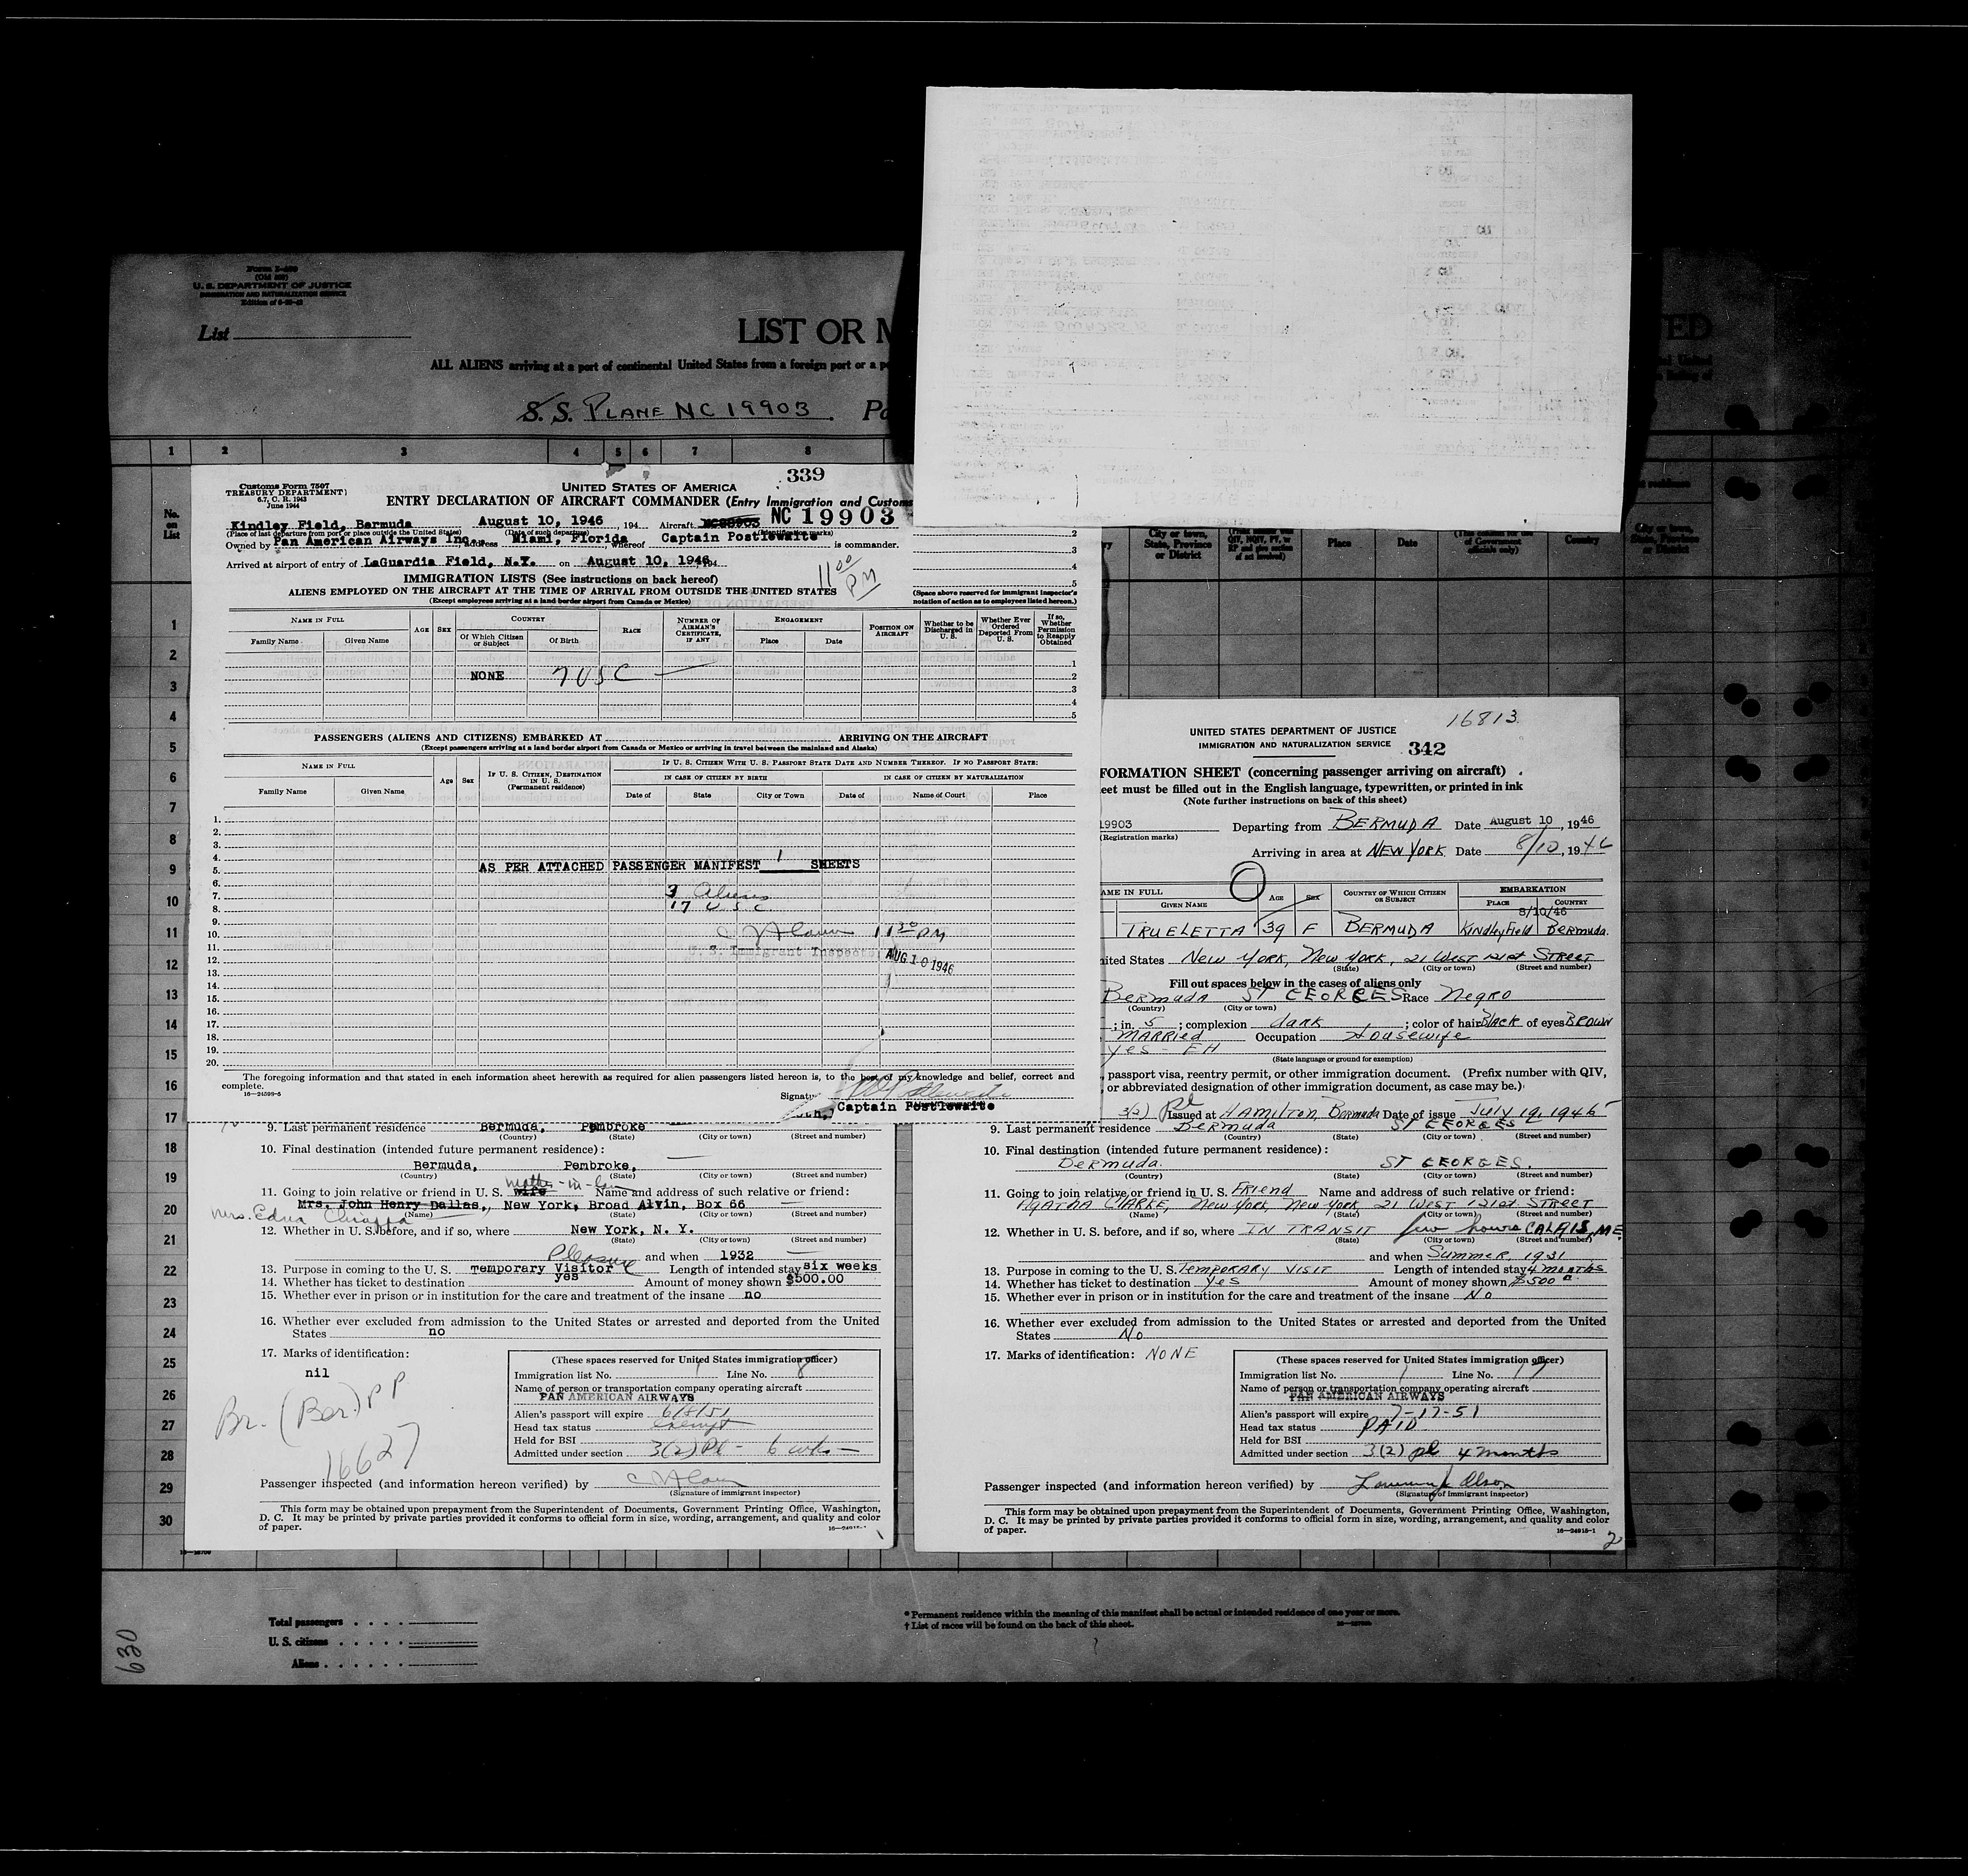 Form I-466
(Old 500)
U. S. DEPARTMENT OF JUSTICE
IMMIGRATION AND NATURALIZATION SERVICE
List
LIST OR M
TED
ALL ALIENS arriving at a port of continental United States from a foreign port or a po
S. S. PLANE NC 19903
1 2 3 4 5 6 7 8
No. on List
1
2
3
4
5
6
7
8
9
10
11
12
13
14
15
16
17
18
19
20
21
22
23
24
25
26
27
28
29
30
City or town, State, Province or District
Place
Date
Country
Customs Form 7507
TREASURY DEPARTMENT
6.7, C. R. 1943
June 1944
339
UNITED STATES OF AMERICA
ENTRY DECLARATION OF AIRCRAFT COMMANDER (Entry Immigration and Customs
Kindley Field, Bermuda August 10, 1946, 194 Aircraft NC 19903
(Place of last departure from port or place outside the United States) (Date of such departure) (Identification marks)
Owned by Pan American Airways Inc., address Miami, Florida, whereof Captain Postlewaite is commander.
Arrived at airport of entry of LaGuardia Field, N.Y. on August 10, 1946, 194
11 00 PM
IMMIGRATION LISTS (See instructions on back hereof)
ALIENS EMPLOYED ON THE AIRCRAFT AT THE TIME OF ARRIVAL FROM OUTSIDE THE UNITED STATES
(Except employees arriving at a land border airport from Canada or Mexico)
2
3
4
5
(Space above reserved for immigrant inspector's notation of action as to employees listed hereon.)
NAME IN FULL
Family Name Given Name
AGE SEX
COUNTRY
Of Which Citizen or Subject Of Birth
RACE
NUMBER OF AIRMAN'S CERTIFICATE, IF ANY
ENGAGEMENT
Place Date
POSITION ON AIRCRAFT
Whether to be Discharged in U. S.
Whether Ever Ordered Deported From U. S.
If so, Whether Permission to Reapply Obtained
NONE 7 USC
1
2
3
4
5
PASSENGERS (ALIENS AND CITIZENS) EMBARKED AT ARRIVING ON THE AIRCRAFT
(Except passengers arriving at a land border airport from Canada or Mexico or arriving in travel between the mainland and Alaska)
NAME IN FULL
Family Name Given Name
Age Sex
IF U. S. CITIZEN, DESTINATION IN U. S. (Permanent residence)
IF U. S. CITIZEN WITH U. S. PASSPORT STATE DATE AND NUMBER THEREOF. IF NO PASSPORT STATE:
IN CASE OF CITIZEN BY BIRTH
IN CASE OF CITIZEN BY NATURALIZATION
Date of State City or Town Date of Name of Court Place
1.
2.
3.
4.
5. AS PER ATTACHED PASSENGER MANIFEST 1 SHEETS
6.
7. 3 Aliens
8. 17 U. S. C.
9.
10. 11 30 PM
11. U. S. Immigrant Inspector AUG 10 1946
12.
13.
14.
15.
16.
17.
18.
19.
20.
The foregoing information and that stated in each information sheet herewith as required for alien passengers listed hereon is, to the best of my knowledge and belief, correct and complete.
16—24599-5
Signatu
Captain Postlewaite
9. Last permanent residence Bermuda, Pembroke
(Country) (State) (City or town) (Street and number)
10. Final destination (intended future permanent residence):
Bermuda, Pembroke,
(Country) (State) (City or town) (Street and number)
11. Going to join relative or friend in U. S. wife mother-in-law Name and address of such relative or friend:
Mrs. John Henry Dallas, New York, Broad Alvin, Box 66
Mrs. Edna
(Name) (State) (City or town) (Street and number)
12. Whether in U. S. before, and if so, where New York, N. Y.
(State) (City or town) (Street and number)
and when 1932
13. Purpose in coming to the U. S. Temporary Visitor Pleasure Length of intended stay six weeks
14. Whether has ticket to destination yes Amount of money shown $500.00
15. Whether ever in prison or in institution for the care and treatment of the insane no
16. Whether ever excluded from admission to the United States or arrested and deported from the United States no
17. Marks of identification:
nil
Br. (Ber.) PP
16627
(These spaces reserved for United States immigration officer)
Immigration list No. 1 Line No. 8
Name of person or transportation company operating aircraft
PAN AMERICAN AIRWAYS
Alien's passport will expire 6/8/51
Head tax status exempt
Held for BSI
Admitted under section 3(2) Pl - 6 wks
Passenger inspected (and information hereon verified) by
(Signature of immigrant inspector)
This form may be obtained upon prepayment from the Superintendent of Documents, Government Printing Office, Washington, D. C. It may be printed by private parties provided it conforms to official form in size, wording, arrangement, and quality and color of paper.
16813
UNITED STATES DEPARTMENT OF JUSTICE
IMMIGRATION AND NATURALIZATION SERVICE 342
FORMATION SHEET (concerning passenger arriving on aircraft)
eet must be filled out in the English language, typewritten, or printed in ink
(Note further instructions on back of this sheet)
19903 Departing from BERMUDA Date August 10, 1946
(Registration marks)
Arriving in area at NEW YORK Date 8/10, 1946
AME IN FULL
GIVEN NAME
AGE SEX
COUNTRY OF WHICH CITIZEN OR SUBJECT
EMBARKATION
PLACE COUNTRY
8/10/46
TRUELETTA 39 F BERMUDA Kindley Field Bermuda.
nited States NEW YORK, NEW YORK, 21 WEST 121st STREET
(State) (City or town) (Street and number)
Fill out spaces below in the cases of aliens only
Bermuda ST GEORGES Race Negro
(Country) (City or town)
; in. 5 ; complexion dark ; color of hair Black of eyes BROWN
MARRIED Occupation Housewife
Yes - EH
(State language or ground for exemption)
passport visa, reentry permit, or other immigration document. (Prefix number with QIV,
or abbreviated designation of other immigration document, as case may be.)
3(2) pl Issued at HAMILTON, Bermuda Date of issue July 19, 1946
9. Last permanent residence Bermuda ST GEORGES
(Country) (State) (City or town) (Street and number)
10. Final destination (intended future permanent residence):
Bermuda. ST GEORGES.
(Country) (State) (City or town) (Street and number)
11. Going to join relative or friend in U. S. Friend Name and address of such relative or friend:
AGATHA CLARKE, New York, New York 21 WEST 121st STREET
(Name) (State) (City or town) (Street and number)
12. Whether in U. S. before, and if so, where IN TRANSIT few hours CALAIS, ME.
(State) (City or town) (Street and number)
and when Summer, 1931
13. Purpose in coming to the U. S. TEMPORARY VISIT Length of intended stay 4 months
14. Whether has ticket to destination Yes Amount of money shown $500
15. Whether ever in prison or in institution for the care and treatment of the insane No
16. Whether ever excluded from admission to the United States or arrested and deported from the United States No
17. Marks of identification: NONE
(These spaces reserved for United States immigration officer)
Immigration list No. 1 Line No. 17
Name of person or transportation company operating aircraft
PAN AMERICAN AIRWAYS
Alien's passport will expire 7-17-51
Head tax status PAID
Held for BSI
Admitted under section 3(2) pl 4 months
Passenger inspected (and information hereon verified) by
(Signature of immigrant inspector)
This form may be obtained upon prepayment from the Superintendent of Documents, Government Printing Office, Washington, D. C. It may be printed by private parties provided it conforms to official form in size, wording, arrangement, and quality and color of paper.
16—24915-1
2
Total passengers
U. S. citizens
Aliens
* Permanent residence within the meaning of this manifest shall be actual or intended residence of one year or more.
† List of races will be found on the back of this sheet.
630